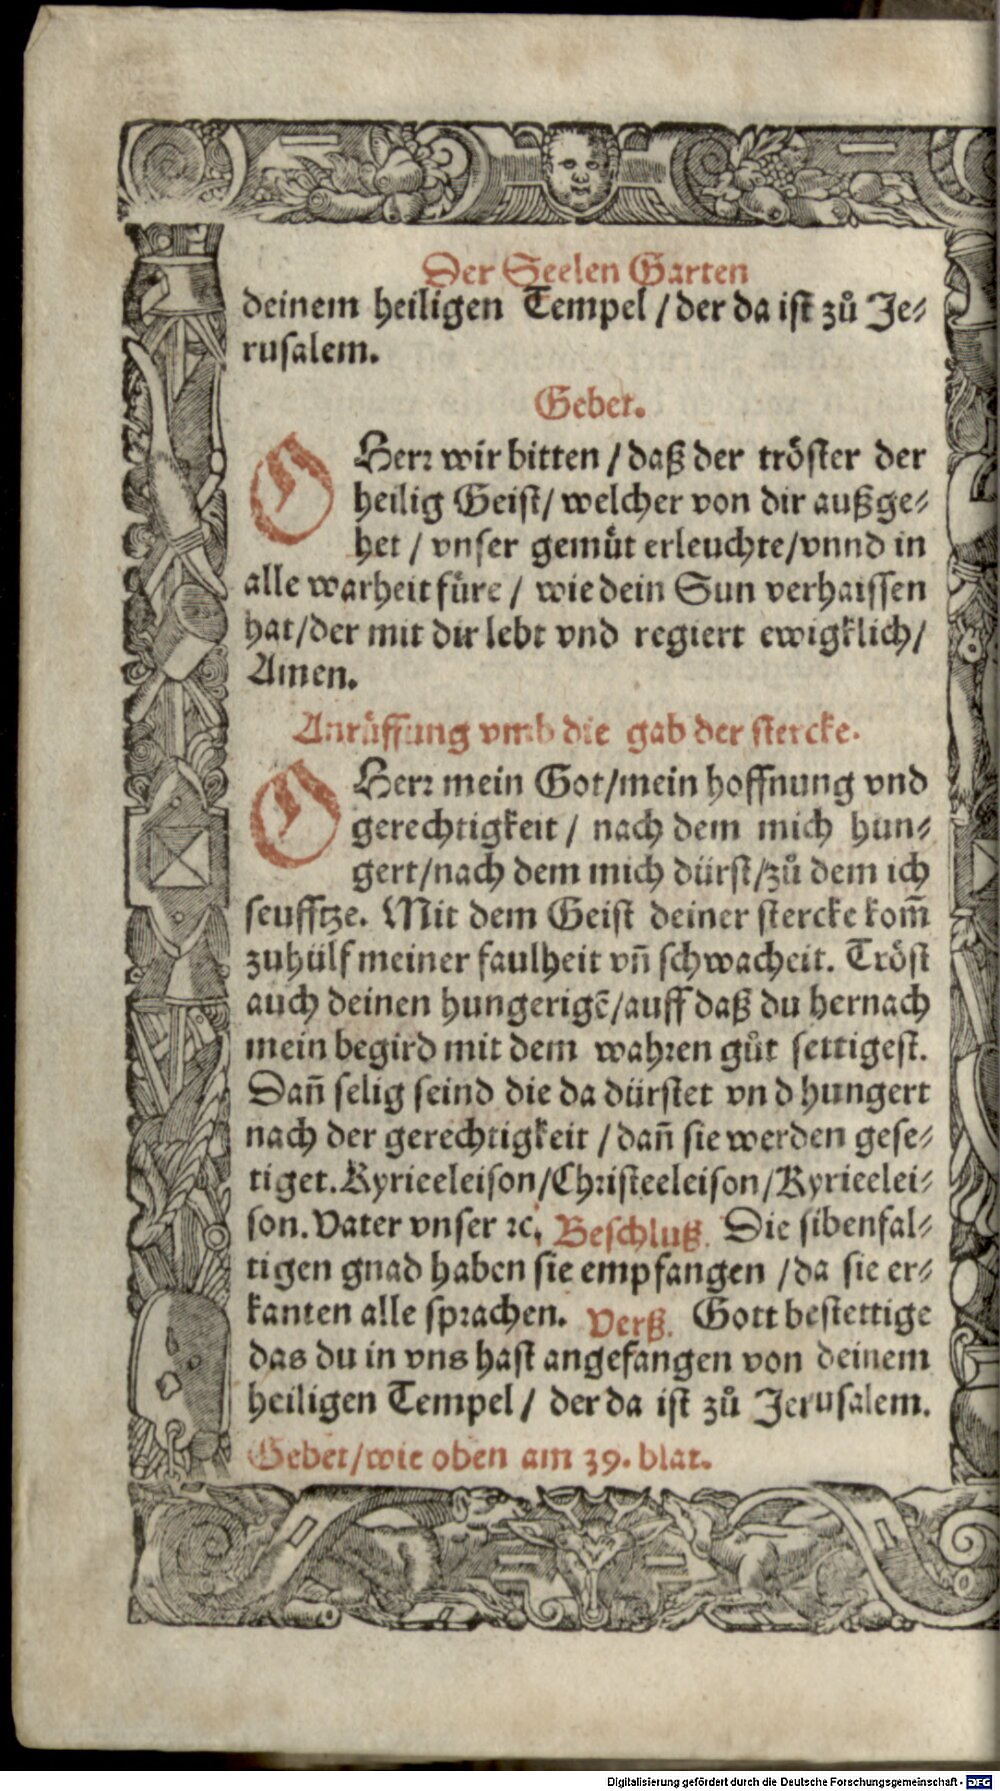 Der Seelen Garten
deinem heiligen Tempel / der da ist zů Je⸗
rusalem.
Gebet.
O Herr wir bitten / daß der tröster der
heilig Geist / welcher von dir außge⸗
het / vnser gemüt erleuchte / vnnd in
alle warheit füre / wie dein Sun verhaissen
hat / der mit dir lebt vnd regiert ewigklich /
Amen.
Anrüffung vmb die gab der stercke.
O Herr mein Got / mein hoffnung vnd
gerechtigkeit / nach dem mich hun⸗
gert / nach dem mich dürst / zů dem ich
seufftze. Mit dem Geist deiner stercke kom̃
zuhülf meiner faulheit vñ schwacheit. Tröst
auch deinen hungerigẽ / auff daß du hernach
mein begird mit dem wahren gůt settigest.
Dañ selig seind die da dürstet vnd hungert
nach der gerechtigkeit / dañ sie werden gese⸗
tiget. Kyrieeleison / Christeeleison / Kyrieelei⸗
son. Vater vnser ꝛc. Beschluß. Die sibenfal⸗
tigen gnad haben sie empfangen / da sie er⸗
kanten alle sprachen. Verß. Gott bestettige
das du in vns hast angefangen von deinem
heiligen Tempel / der da ist zů Jerusalem.
Gebet / wie oben am 39. blat.
Digitalisierung gefördert durch die Deutsche Forschungsgemeinschaft - DFG